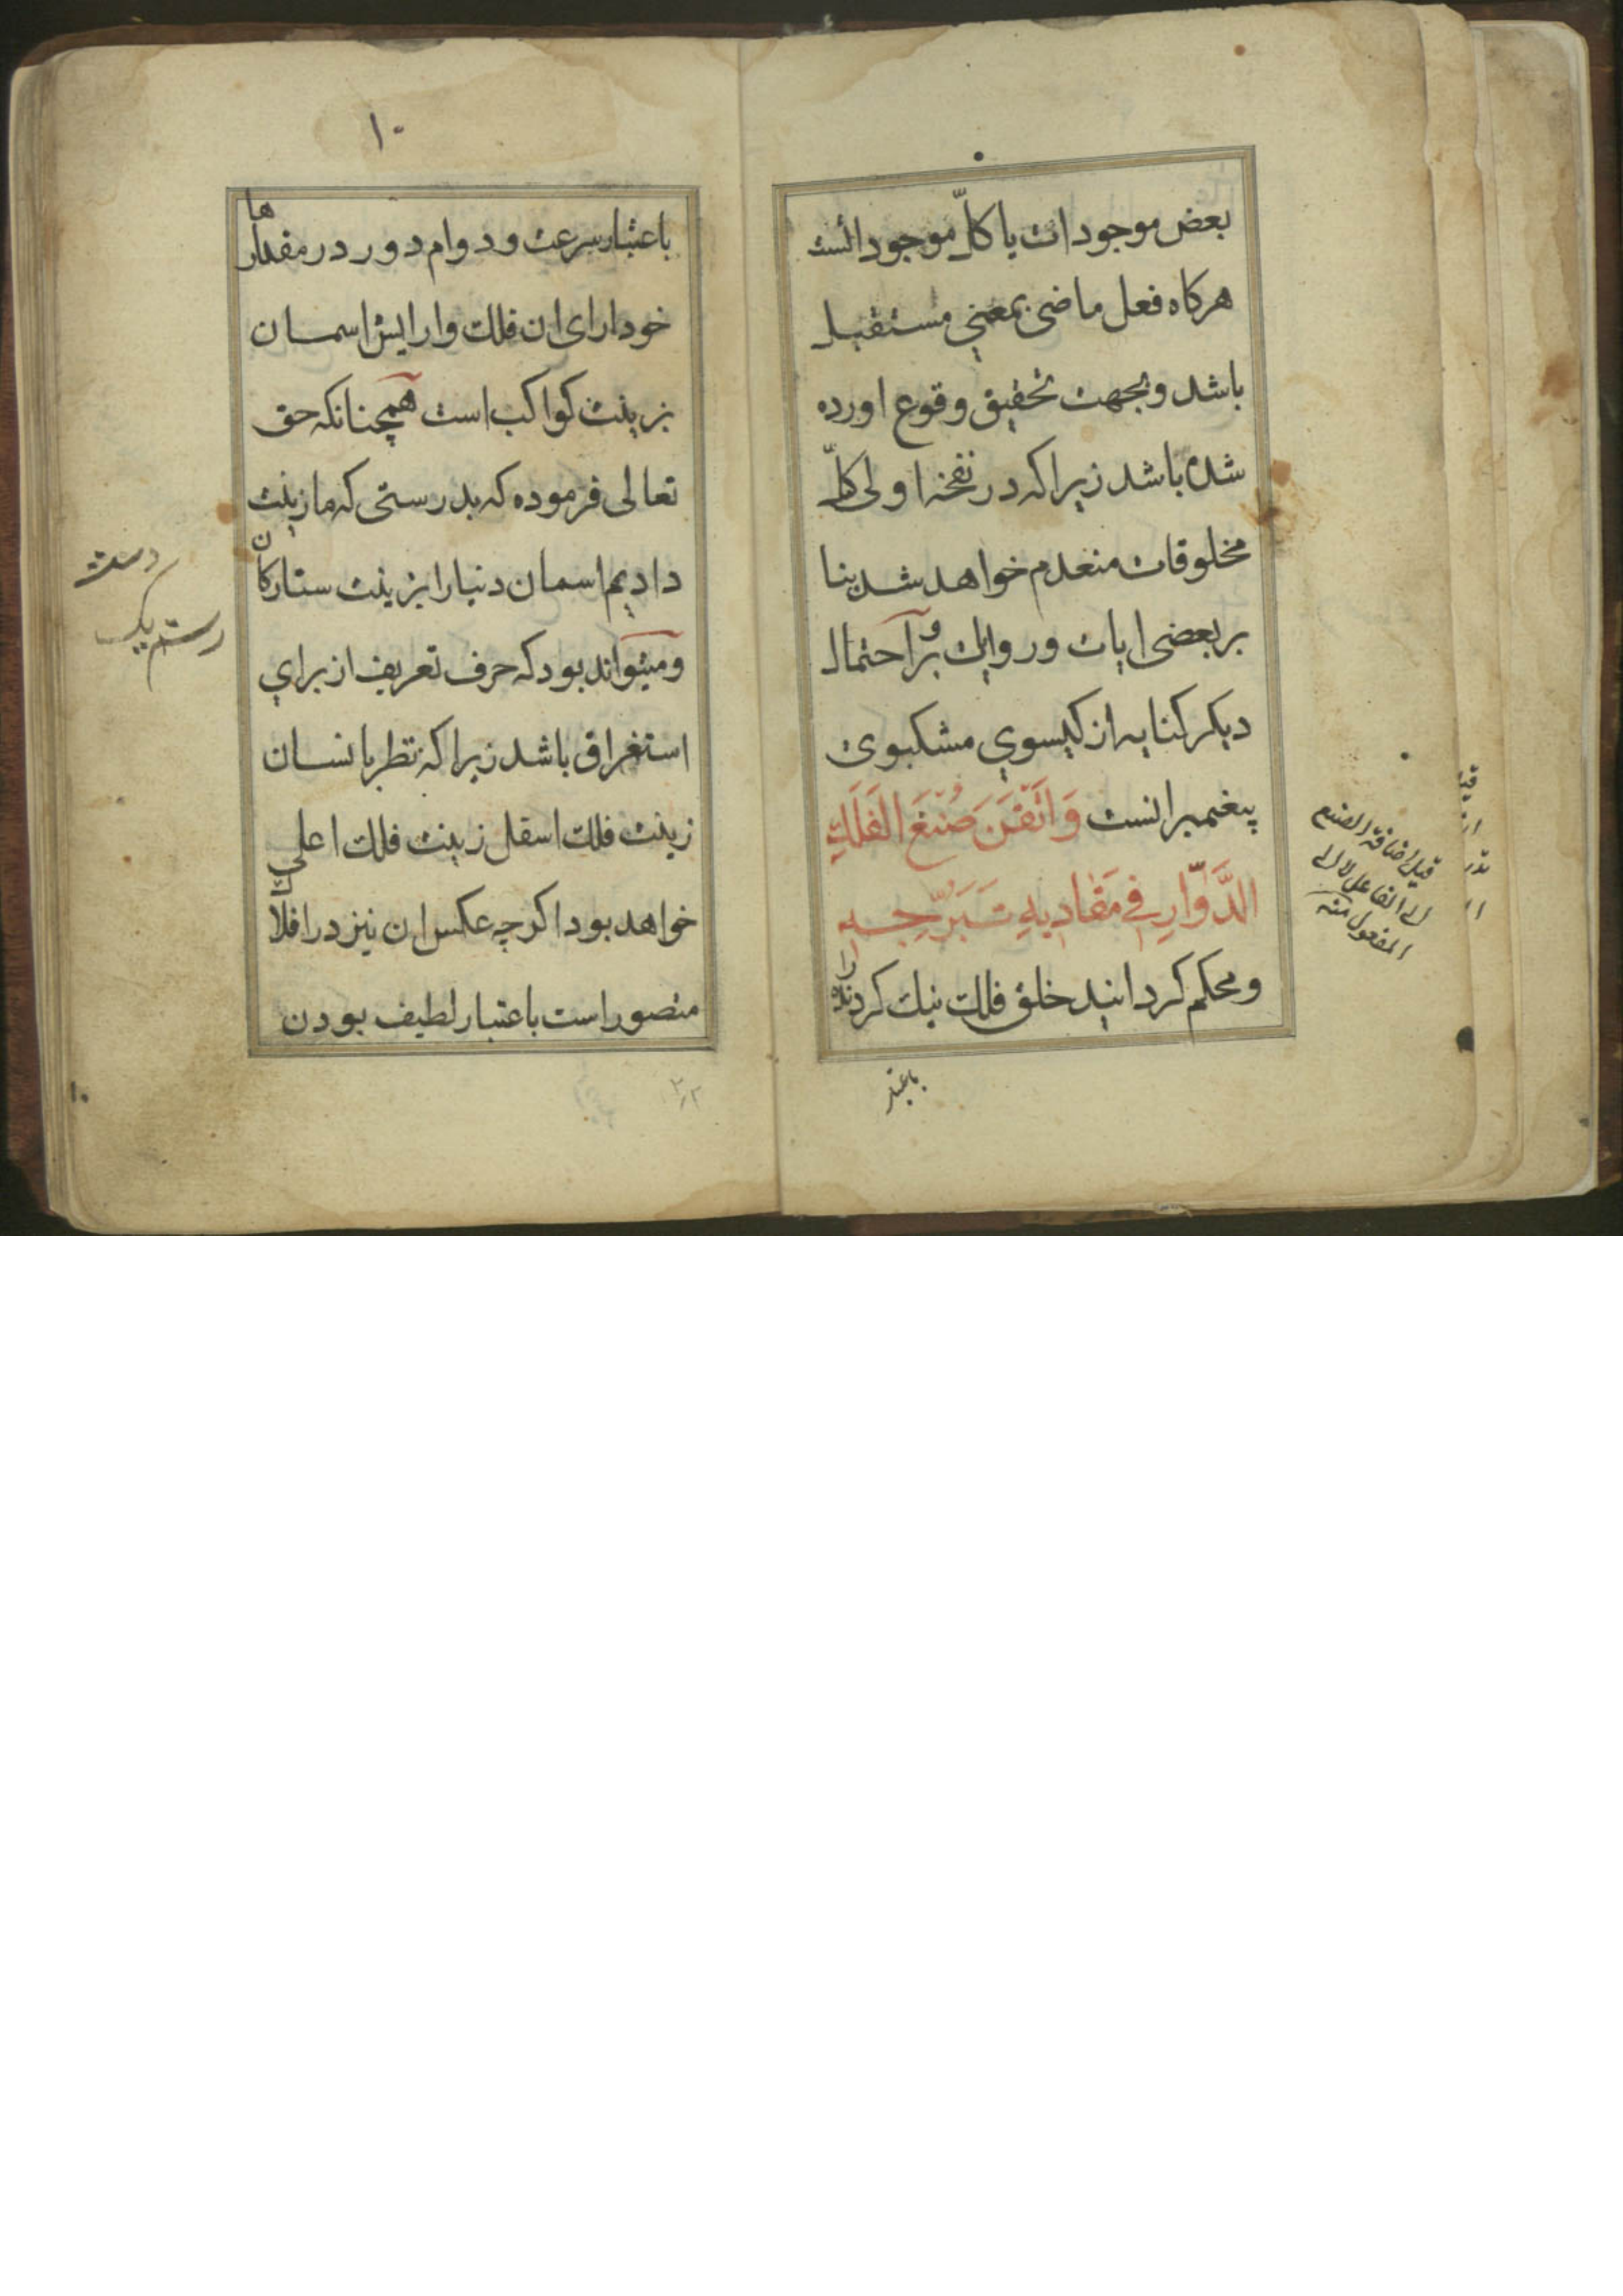 بعض موجودات یا کلّ موجوداتست
هرکاه فعل ماضی بمعنی مستقبل
باشد و بجهت تحقیق وقوع اورده
شده باشد زیرا که در نفخه اولی کلّ
مخلوقات منعدم خواهد شد بنا
بر بعضی ایات و روایات و بر احتمال
دیکر کنایه از کیسوی مشکبوی
پیغمبرانست وَاَتْقَنَ صُنْعَ الفَلَكِ
الدَّوّارِ في مَقاديرِ تَبَرُّجِه
و محکم کردانید خلق فلك نیك کردنده را
قیل اضافة الصنع
الی الفاعل لا الی
المفعول منه
باعتبار
۱۰
باعتبار سرعت و دوام دور در مقدارها
خود ارای ان فلك و ارایش اسمان
بزینت کواکب است همچنانکه حق
تعالی فرموده که بدرستی که ما زینت
دادیم اسمان دنیا را بزینت ستارکان
و میتواند بود که حرف تعریف از برای
استغراق باشد زیرا که نظر بانسان
زینت فلك اسفل زینت فلك اعلی
خواهد بود اکرچه عکس ان نیز در افلاك
متصور است باعتبار لطیف بودن
۱۰